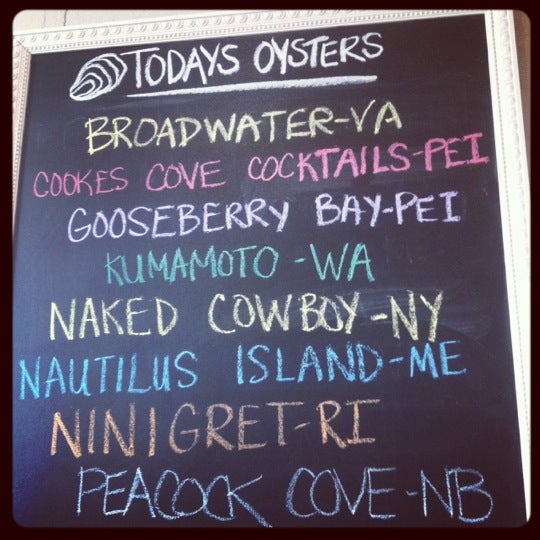 TODAYS OYSTERS
BROADWATER-VA
COOKES COVE COCKTAILS-PEI
GOOSEBERRY BAY-PEI
KUMAMOTO -WA
NAKED COWBOY-NY
NAUTILUS ISLAND-ME
NINIGRET-RI
PEACOCK COVE-NB